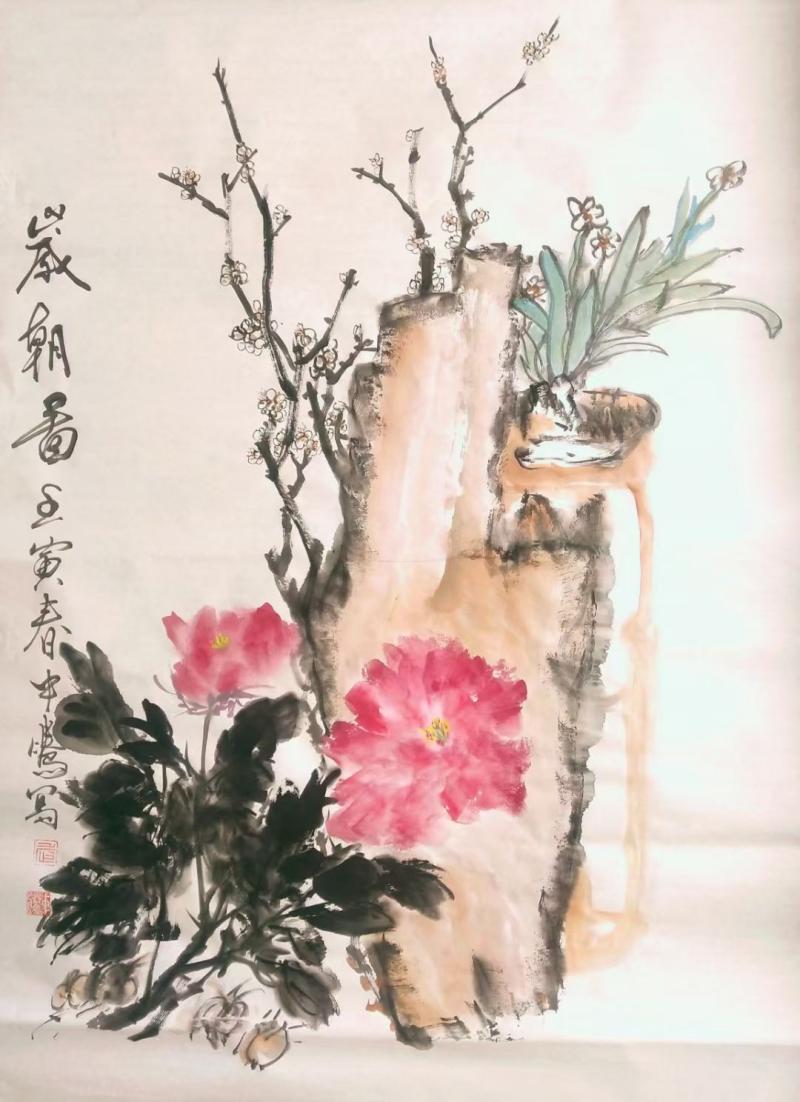 歲朝圖壬寅春中鵬寫